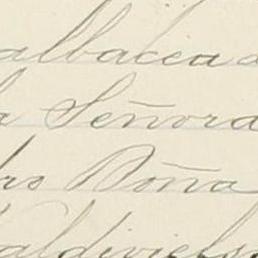 albacea
Señora
Doña
aldivielso